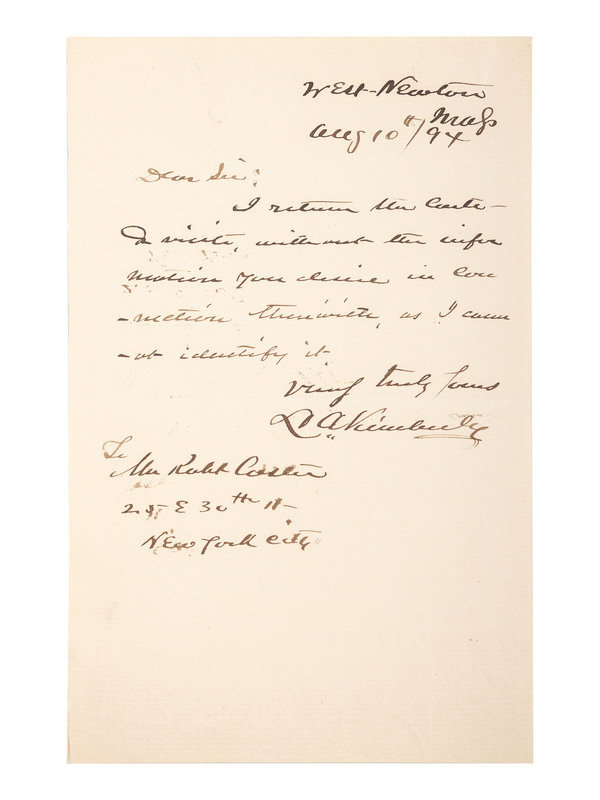 West-Newton
Mass
Aug 10th/94
Dear Sir:
I return the Carte-
d visite, without the infor
mation you desire in con
-nection therewith, as I cann
-ot identify it
Very truly yours
L A Kimberly
To
Mr Robt Coster
25 E 30th st-
New York City